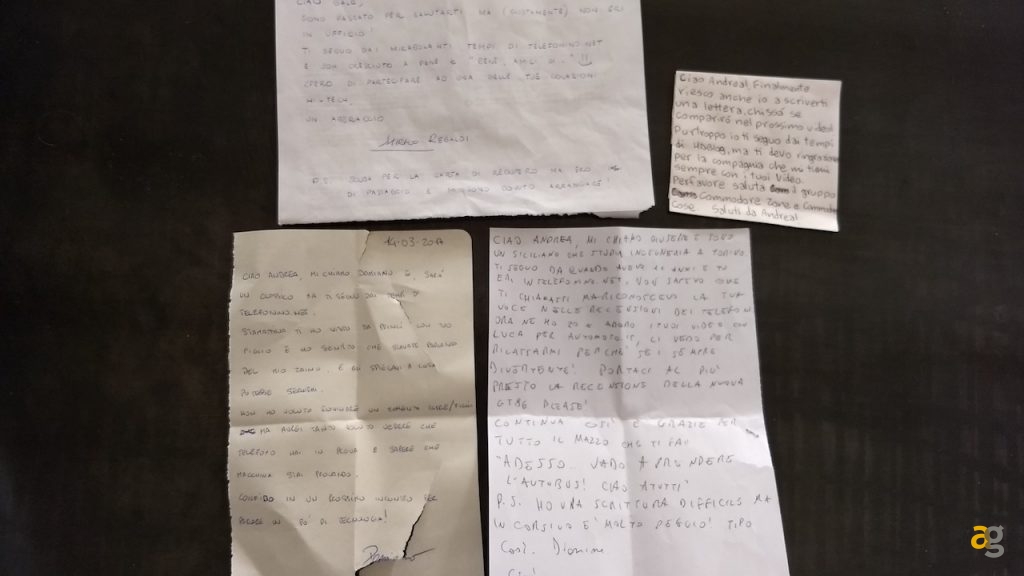 CIAO GALE,
SONO PASSATO PER SALUTARTI MA (GIUSTAMENTE) NON ERI
IN UFFICIO!
TI SEGUO DAI MIRABOLANTI TEMPI DI TELEFONINO.NET
E SON CRESCIUTO A PANE E "BENE, AMICI DI.."
SPERO DI PARTECIPARE AD UNA DELLE TUE COLAZIONI
HI-TECH.
UN ABBRACCIO
MIRKO REGALDI
P.S. SCUSA PER LA CARTA DI RECUPERO MA ERO
DI PASSAGGIO E DOVUTO ARRANGIARE!
Ciao Andrea! Finalmente
riesco anche io a scriverti
una lettera, chissà se
comparirò nel prossimo video!
Purtroppo io ti seguo dai tempi
di HDBlog, ma ti devo ringraziare
per la compagnia che mi tieni
sempre con i tuoi video.
Perfavore saluta il gruppo
Commodore Zone e Commodore
Cose. Saluti da Andrea!
14.03.2017
CIAO ANDREA, MI CHIAMO DAMIANO E SARÀ
UN CLASSICO MA TI SEGUO DAI TEMPI DI
TELEFONINO.NET.
STAMATTINA TI HO VISTO DA PRINCI CON TUO
FIGLIO E HO SENTITO CHE STAVATE PARLANDO
DEL TUO ZAINO, E GLI SPIEGAVI A COSA
POTESSE SERVIRE.
NON HO VOLUTO ROVINARE UN MOMENTO PADRE/FIGLIO
MA AVREI TANTO VOLUTO VEDERE CHE
TELEFONO HAI IN PROVA E SAPERE CHE
MACCHINA STAI PROVANDO.
CONFIDO IN UN PROSSIMO INCONTRO PER
PARLARE UN PO' DI TECNOLOGIA!
Damiano
CIAO ANDREA, MI CHIAMO GIUSEPPE E SONO
UN SICILIANO CHE STUDIA INGEGNERIA A TORINO.
TI SEGUO DA QUANDO AVEVO 11 ANNI E TU
ERI IN TELEFONINO.NET. NON SAPEVO COME
TI CHIAMASSI MA RICONOSCEVO LA TUA
VOCE NELLE RECENSIONI DEI TELEFONI.
ORA NE HO 20 E ADORO I TUOI VIDEO CON
LUCA PER AUTOMOTO.IT, LI VEDO PER
RILASSARMI PERCHÉ SEI SEMPRE
DIVERTENTE! PORTACI AL PIÙ
PRESTO LA RECENSIONE DELLA NUOVA
GT86 PLEASE!
CONTINUA COSÌ E GRAZIE PER
TUTTO IL MAZZO CHE TI FAI!
"ADESSO.. VADO A PRENDERE
L'AUTOBUS! CIAO A TUTTI"
P.S. HO UNA SCRITTURA DIFFICILE MA
IN CORSIVO E' MOLTO PEGGIO! TIPO
Così.
ag